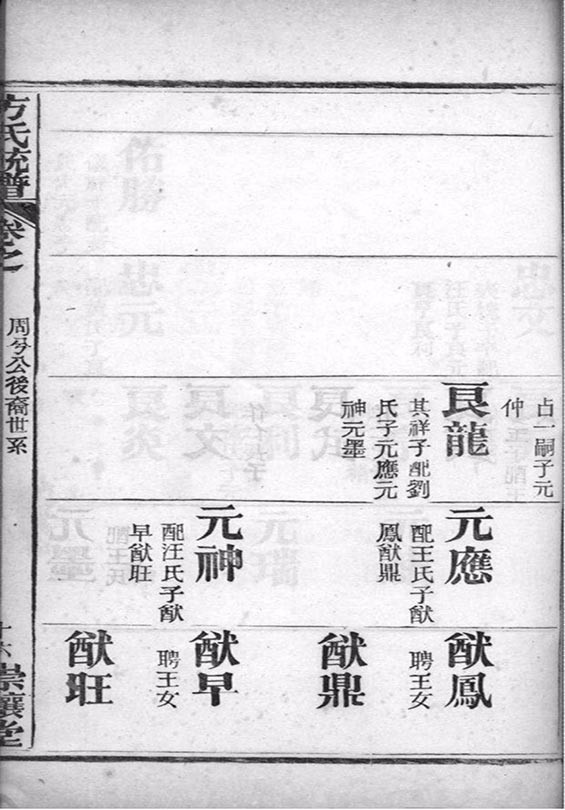 占一嗣子元
仲
良龍
其祥子配劉
氏子元應元
神元墨
元應
配王氏子猷
鳳猷鼎
元神
配汪氏子猷
早猷旺
猷鳳
聘王女
猷鼎
猷早
聘王女
猷旺
方氏統譜
卷之
周兮公後裔世系
十六
崇讓堂